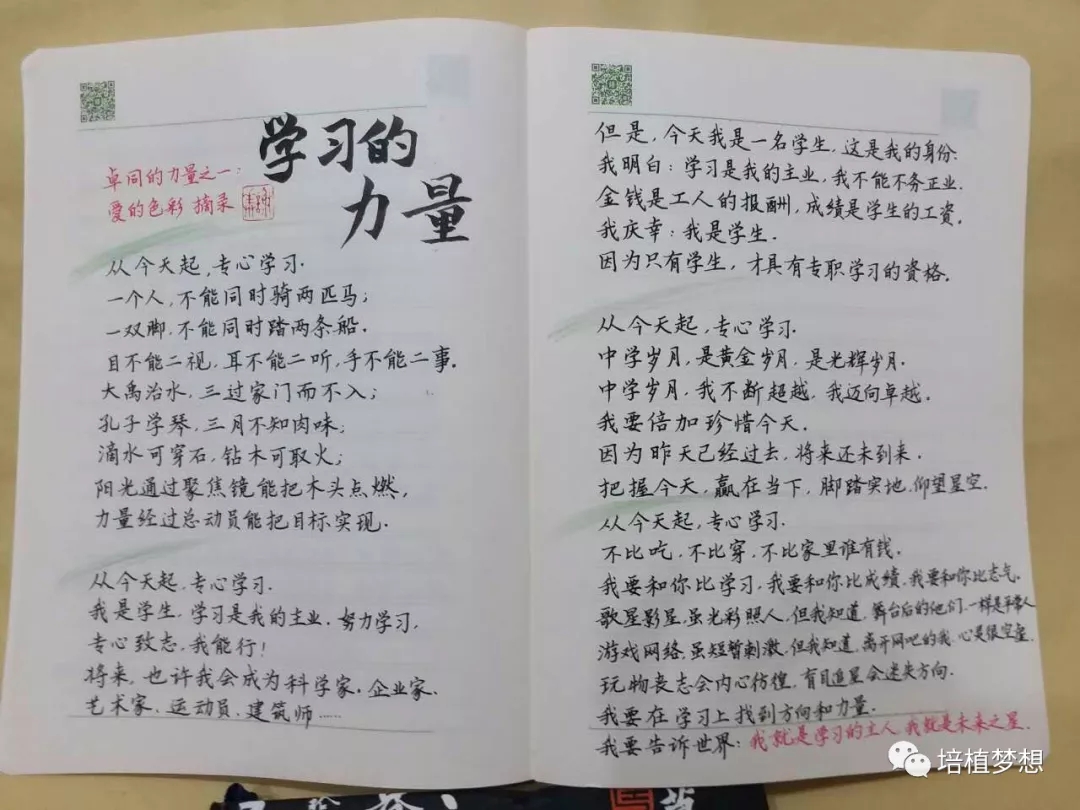 学习的
力量
卓同的力量之一:
爱的色彩 摘录
从今天起,专心学习.
一个人,不能同时骑两匹马;
一双脚,不能同时踏两条船.
目不能二视,耳不能二听,手不能二事.
大禹治水,三过家门而不入;
孔子学琴,三月不知肉味;
滴水可穿石,钻木可取火;
阳光通过聚焦镜能把木头点燃,
力量经过总动员能把目标实现.
从今天起,专心学习.
我是学生,学习是我的主业.努力学习,
专心致志,我能行!
将来,也许我会成为科学家.企业家.
艺术家、运动员、建筑师……
但是,今天我是一名学生,这是我的身份.
我明白:学习是我的主业,我不能不务正业.
金钱是工人的报酬,成绩是学生的工资.
我庆幸:我是学生.
因为只有学生,才具有专职学习的资格.
从今天起,专心学习.
中学岁月,是黄金岁月,是光辉岁月.
中学岁月,我不断超越,我迈向卓越.
我要倍加珍惜今天.
因为昨天已经过去,将来还未到来.
把握今天,赢在当下,脚踏实地,仰望星空.
从今天起,专心学习.
不比吃,不比穿,不比家里谁有钱.
我要和你比学习,我要和你比成绩,我要和你比志气.
歌星影星,虽光彩照人,但我知道,舞台后的他们,一样是平常人
游戏网络,虽短暂刺激,但我知道,离开网吧的我,心灵很空虚.
玩物丧志会内心彷徨,盲目追星会迷失方向.
我要在学习上找到方向和力量.
我要告诉世界:我就是学习的主人,我就是未来之星.
培植梦想